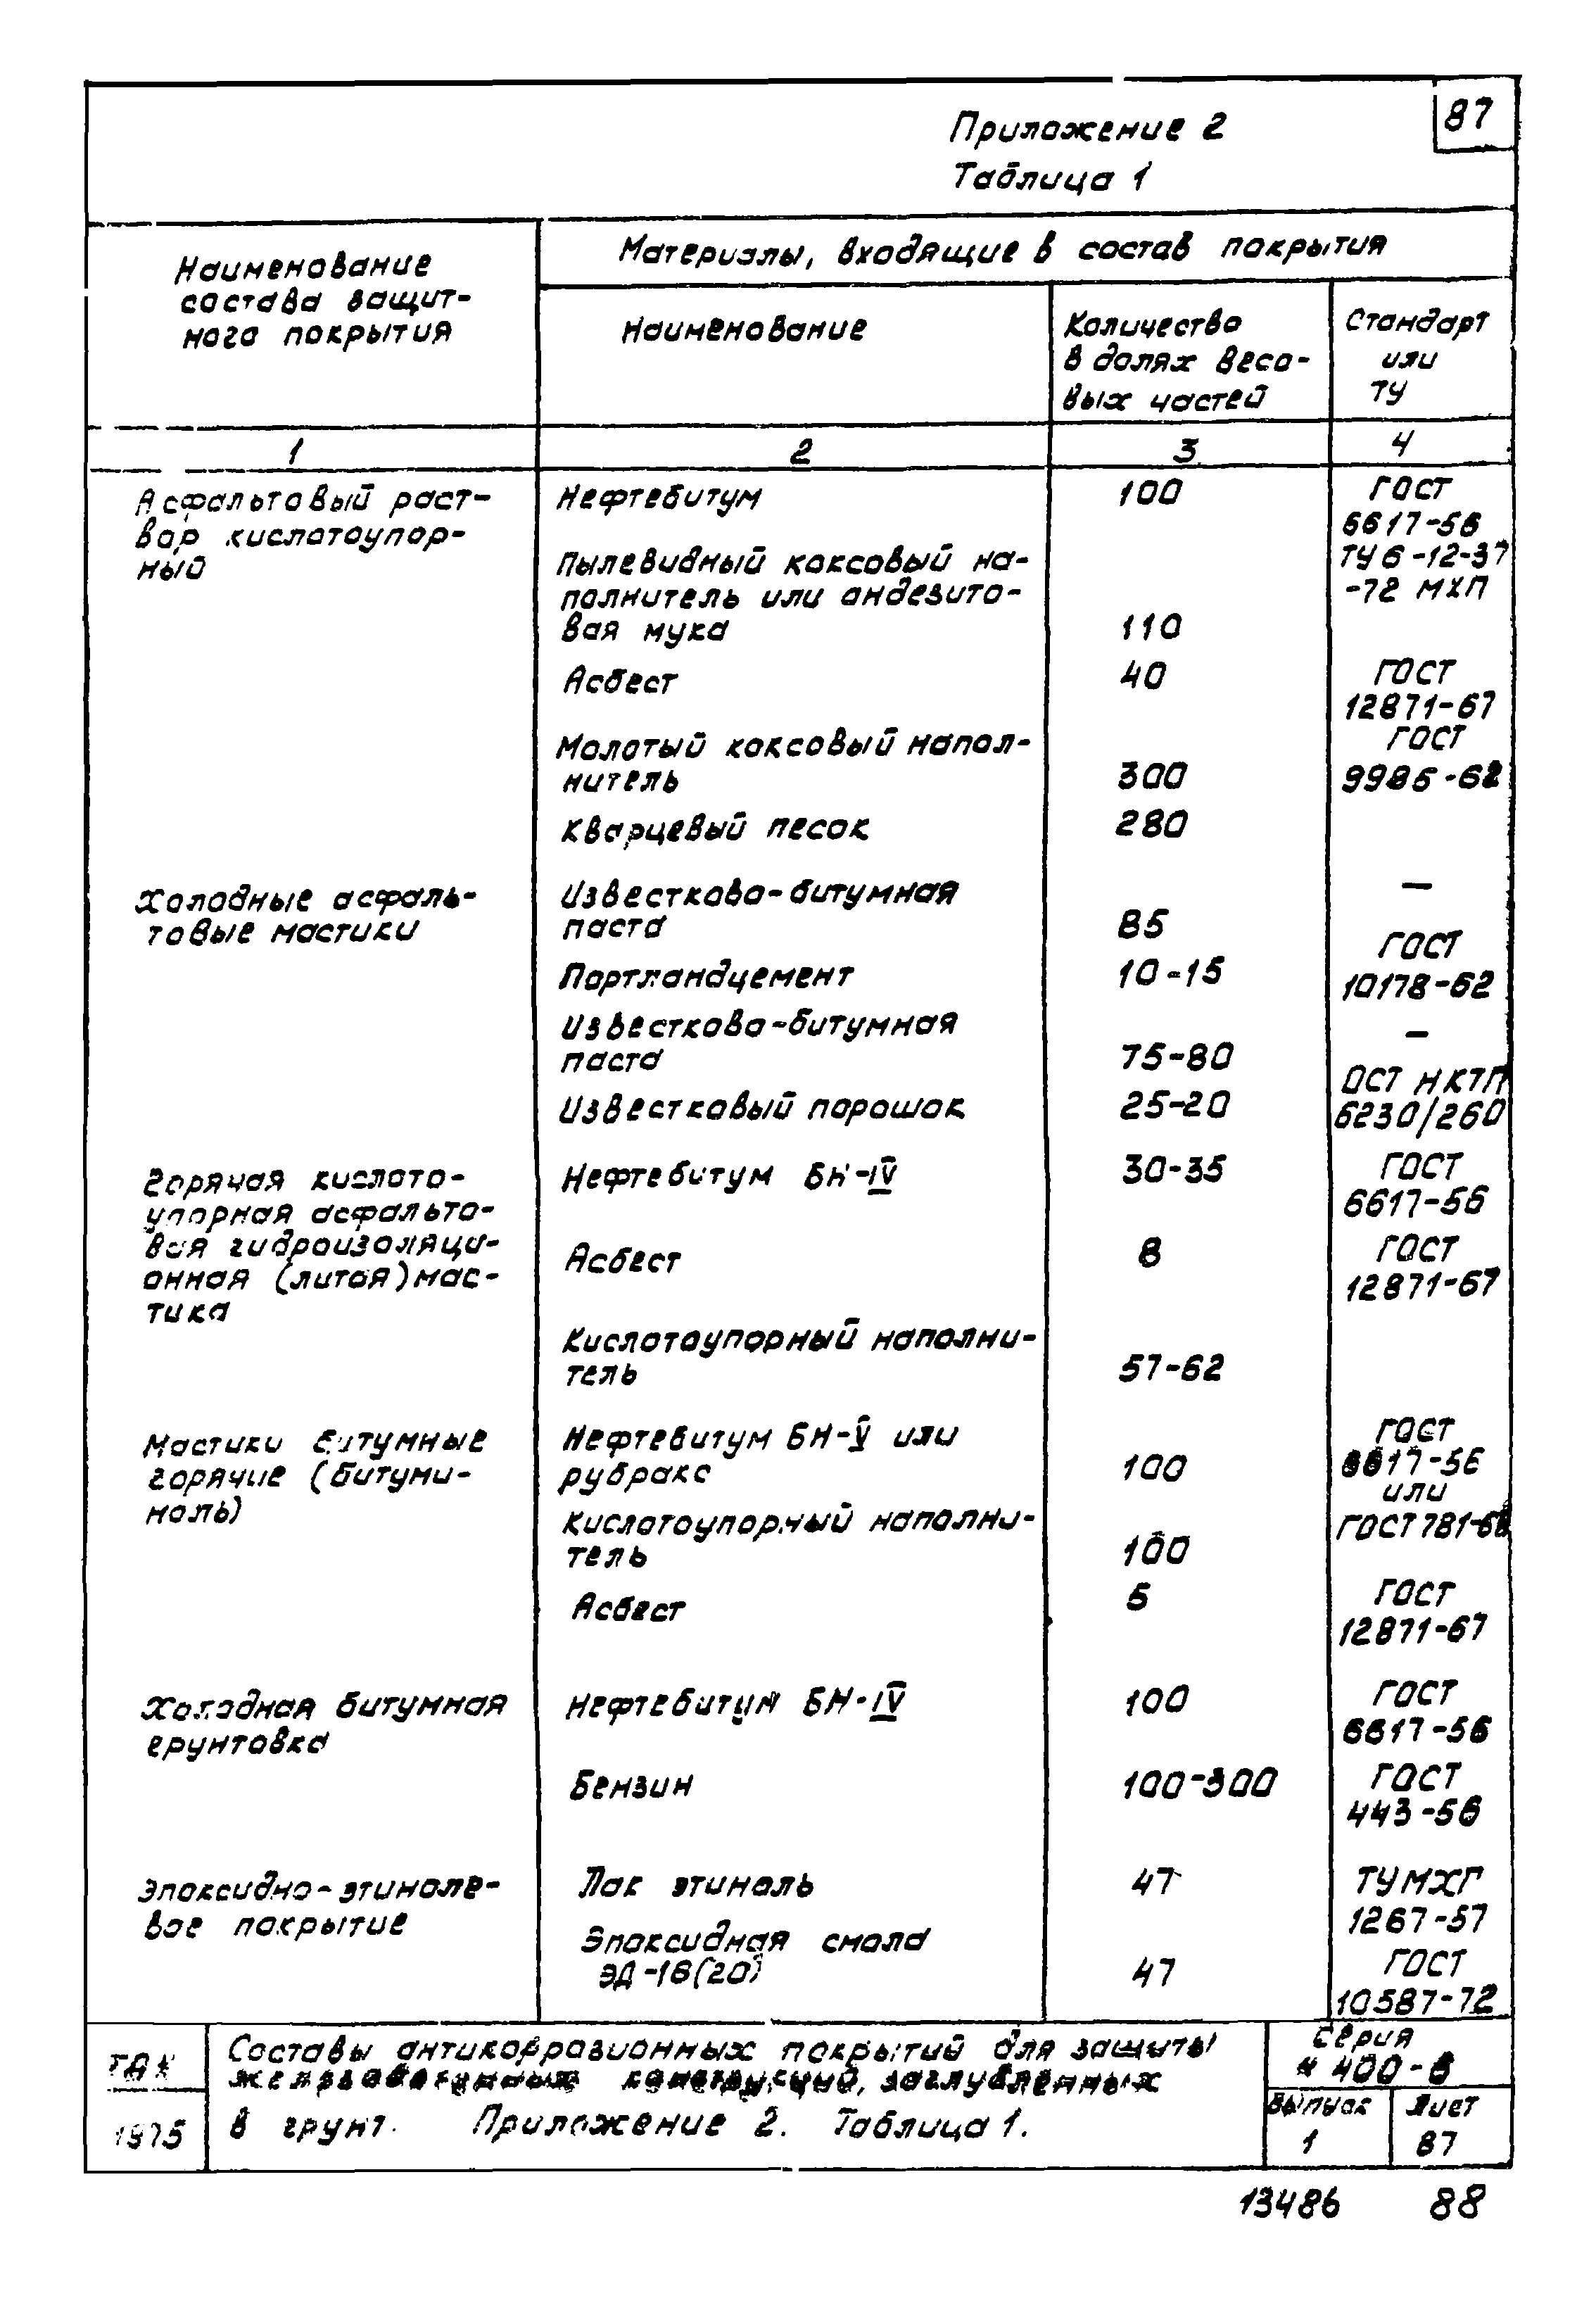 87
Приложение 2
Таблица 1
Наименование
состава защит-
ного покрытия
Материалы, входящие в состав покрытия
Наименование
Количество
в долях весо-
вых частей
Стандарт
или
ТУ
1 2 3 4
Асфальтовый раст-
вор кислотоупор-
ный
Нефтебитум 100 ГОСТ
6617-56
Пылевидный коксовый на-
полнитель или андезито-
вая мука 110
ТУ 6-12-37
-72 МХП
Асбест 40 ГОСТ
12871-67
Молотый коксовый напол-
нитель 300
ГОСТ
9985-62
Кварцевый песок 280
Холодные асфаль-
товые мастики
Известково-битумная
паста 85
—
Портландцемент 10-15
ГОСТ
10178-62
Известково-битумная
паста 75-80
—
Известковый порошок 25-20
ОСТ НКТП
6230/260
Горячая кислото-
упорная асфальто-
вая гидроизоляци-
онная (литая) мас-
тика
Нефтебитум БН-IV 30-35 ГОСТ
6617-56
Асбест 8 ГОСТ
12871-67
Кислотоупорный наполни-
тель 57-62
Мастики битумные
горячие (битуми-
ноль)
Нефтебитум БН-V или
рубракс 100
ГОСТ
6617-56
или
ГОСТ 781-68
Кислотоупорный наполни-
тель 100
Асбест 5 ГОСТ
12871-67
Холодная битумная
грунтовка
Нефтебитум БН-IV 100 ГОСТ
6617-56
Бензин 100-300 ГОСТ
443-56
Эпоксидно-этиноле-
вое покрытие
Лак этиноль 47 ТУ МХП
1267-57
Эпоксидная смола
ЭД-16(20) 47
ГОСТ
10587-72
ТДК
1975
Составы антикоррозионных покрытий для защиты
железобетонных конструкций, заглубленных
в грунт. Приложение 2. Таблица 1.
Серия
400-6
Выпуск
1
Лист
87
13486 88